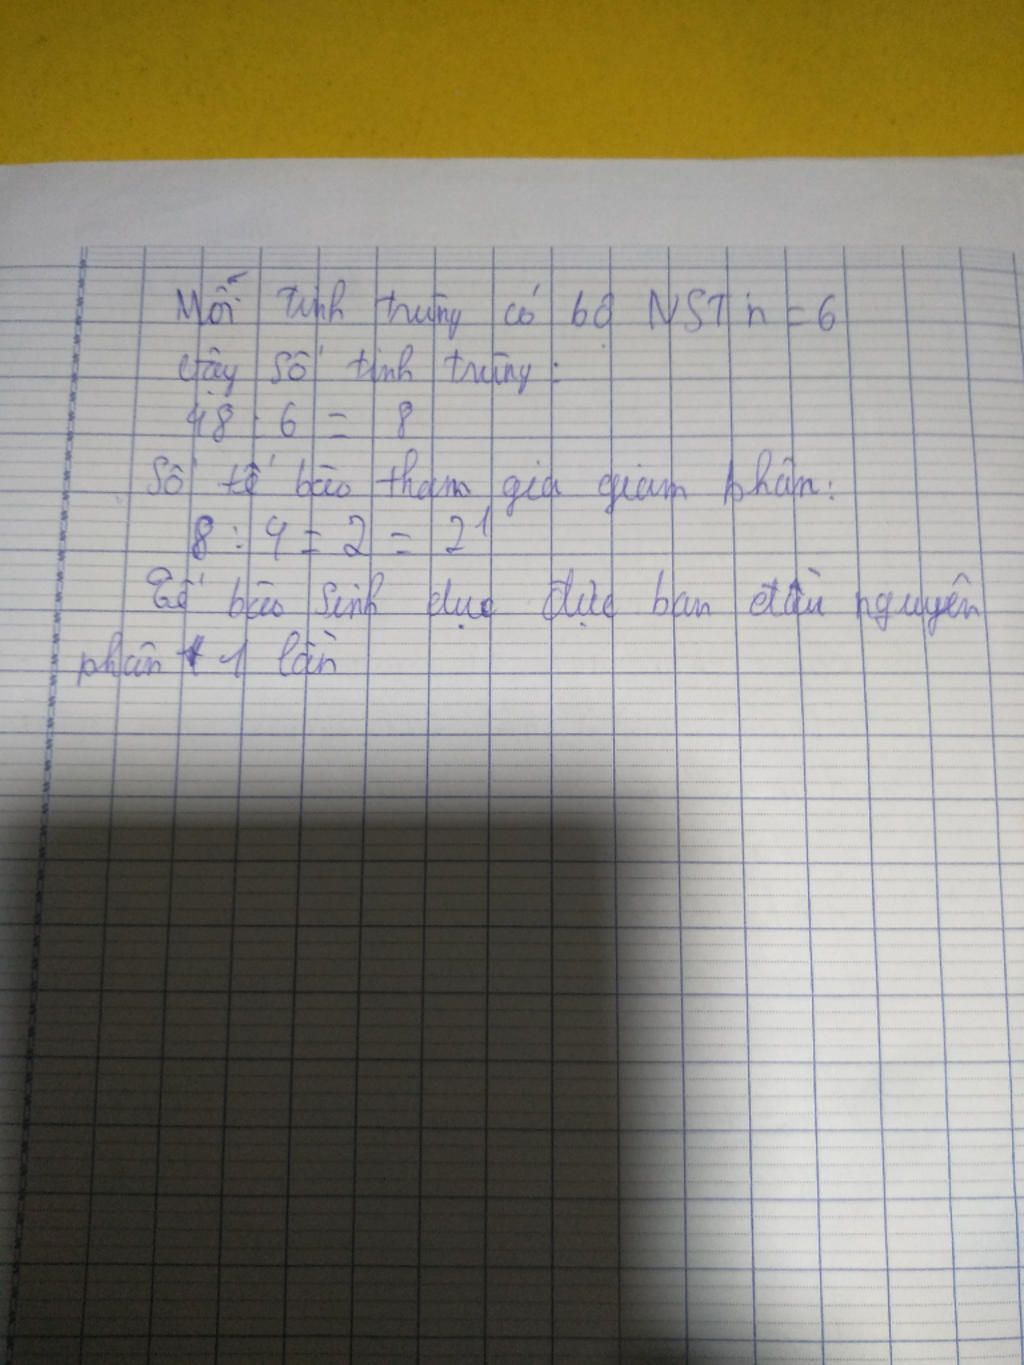 Mỗi tinh trùng có bộ NST n = 6
Vậy số tinh trùng:
48 : 6 = 8
Số tế bào tham gia giảm phân:
8 : 4 = 2 = 2¹
Tế bào sinh dục đực ban đầu nguyên
phân 1 lần